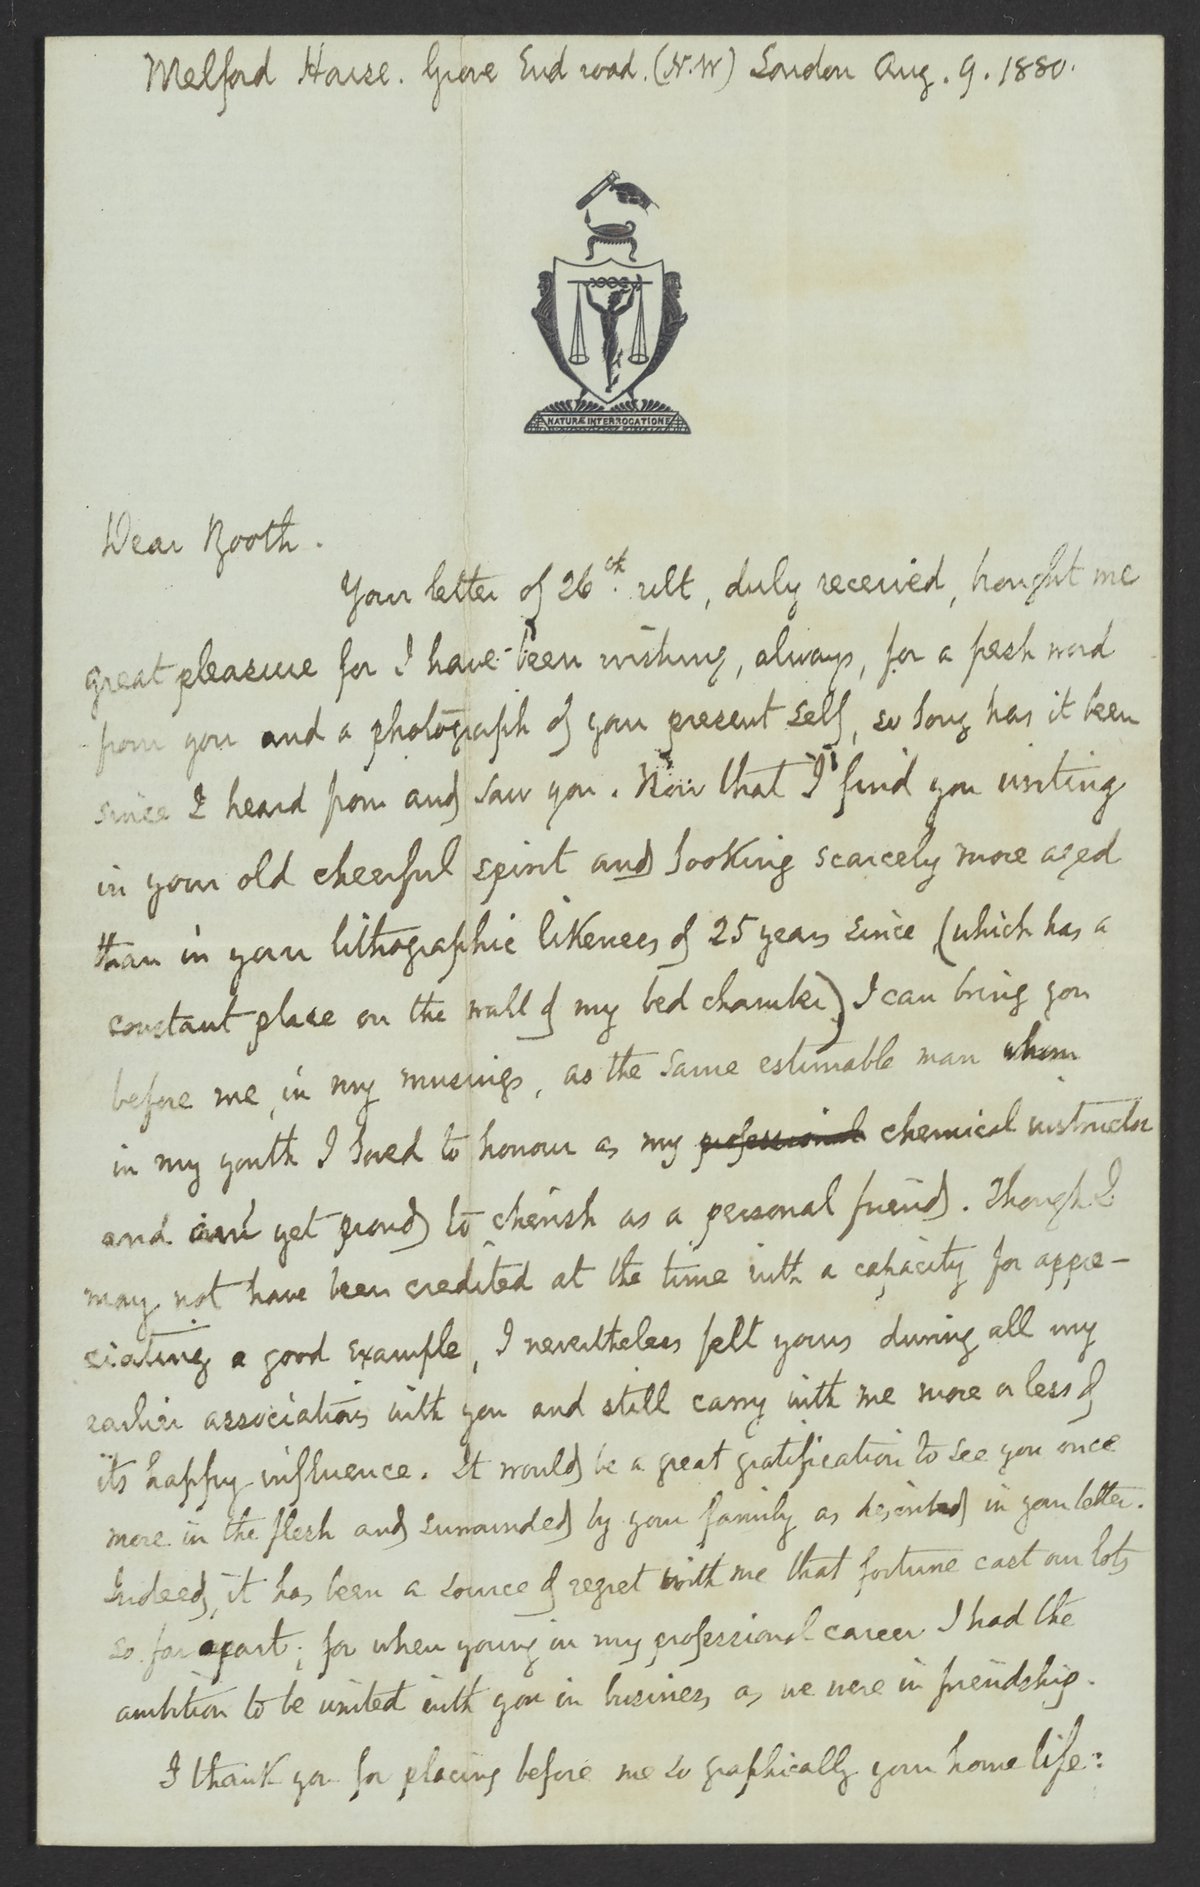 Melford House. Grove End road. (N.W) London Aug. 9. 1880.
NATURÆ INTERROGATIONE
Dear Booth.
Your letter of 26th. ult, duly received, brought me
great pleasure for I have been wishing, always, for a fresh word
from you and a photograph of your present self, so long has it been
since I heard from and saw you. Now that I find you writing
in your old cheerful spirit and looking scarcely more aged
than in your lithographic likeness of 25 years since (which has a
constant place on the wall of my bed chamber) I can bring you
before me, in my musings, as the same estimable man whom
in my youth I loved to honour as my professional chemical instructor
and am yet proud to cherish as a personal friend. Though I
may not have been credited at the time with a capacity for appre-
ciating a good example, I nevertheless felt yours during all my
earlier associations with you and still carry with me more or less of
its happy influence. It would be a great gratification to see you once
more in the flesh and surrounded by your family as described in your letter.
Indeed, it has been a source of regret with me that fortune cast our lots
so far apart; for when young in my professional career I had the
ambition to be united with you in business, as we were in friendship.
I thank you for placing before me so graphically your home life: